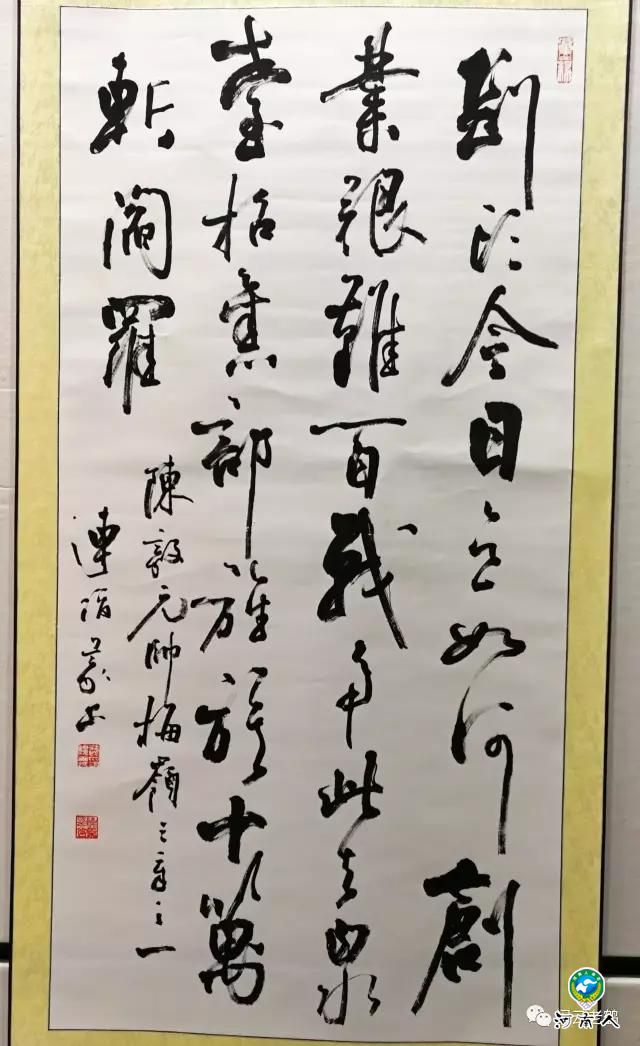 斷頭今日意如何創
業艱難百戰多此去泉
臺招舊部旌旗十萬
斬閻羅
陳毅元帥梅嶺三章之一
連
河南人